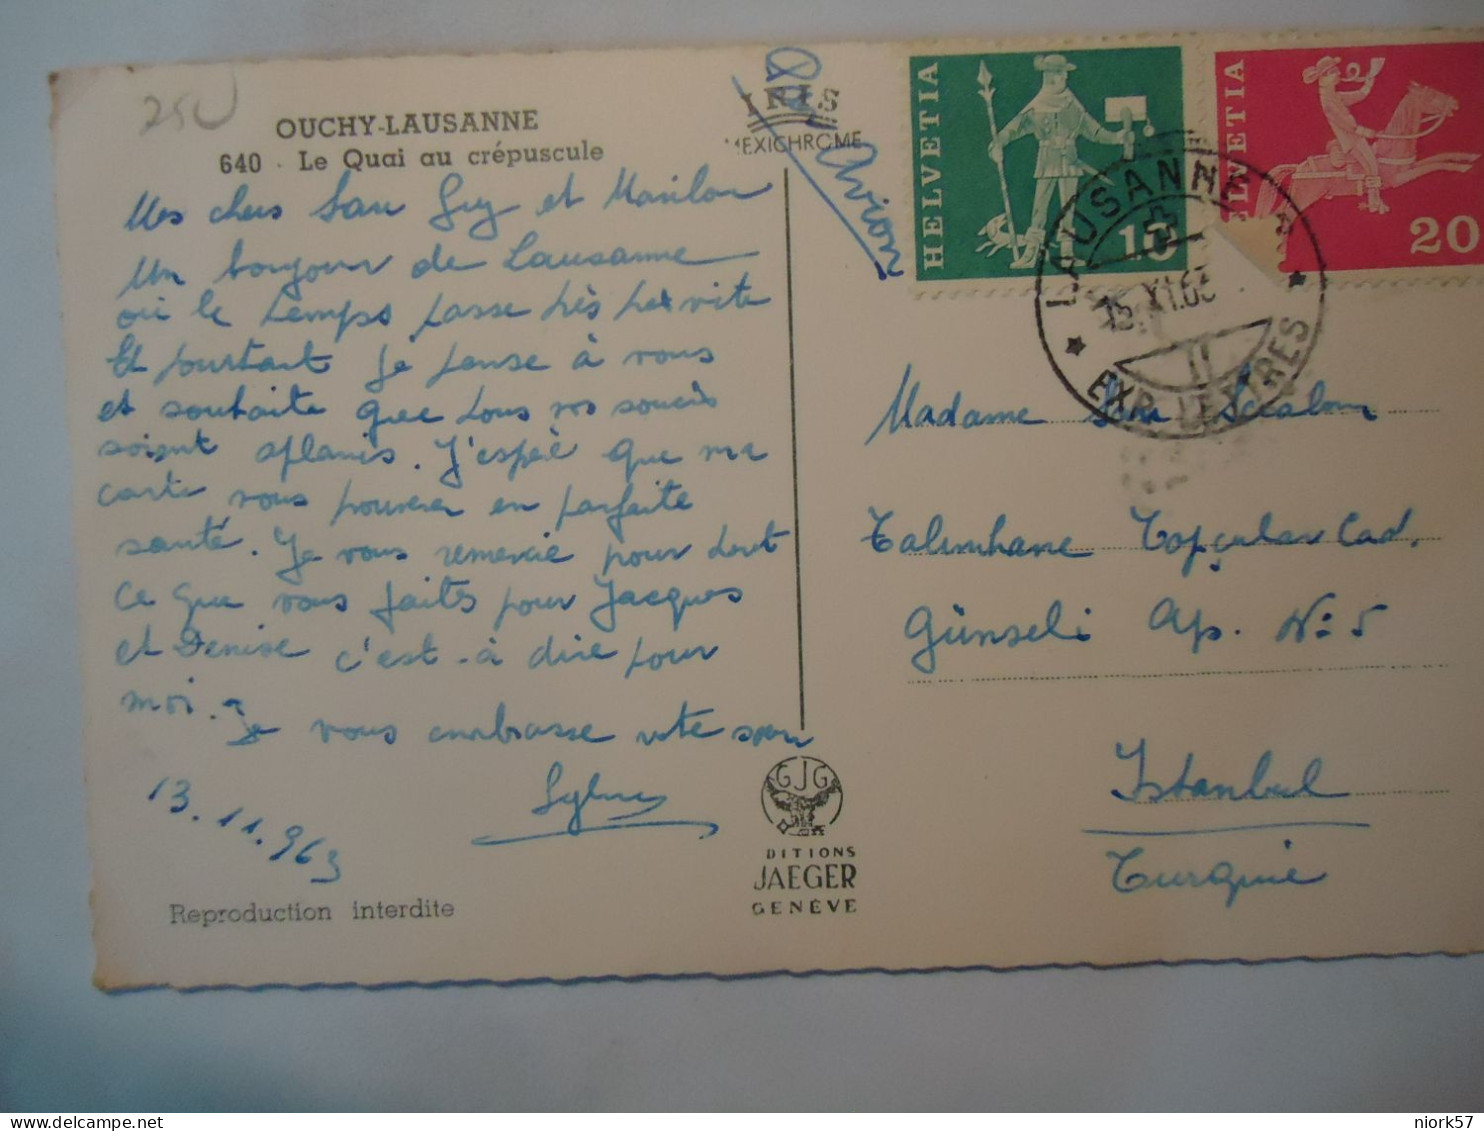 250
OUCHY-LAUSANNE
640 - Le Quai au crépuscule
IRIS
MEXICHROME
Par Avion
HELVETIA
10
HELVETIA
20
LAUSANNE
15.XI.63
11
EXP. LETTRES
Mes chers Guy et
Un bonjour de Lausanne
où le temps passe très très vite
Et pourtant je pense à vous
et souhaite que tous vos soucis
soient aplanis. J'espère que ma
carte vous trouvera en parfaite
santé. Je vous remercie pour tout
ce que vous faites pour Jacques
et Denise c'est-à dire pour
moi. Je vous embrasse
13.11.963
Madame
Talimhane Topçular Cad.
Günseli Ap. No 5
Istanbul
Turquie
GJG
DITIONS
JAEGER
GENÈVE
Reproduction interdite
niork57